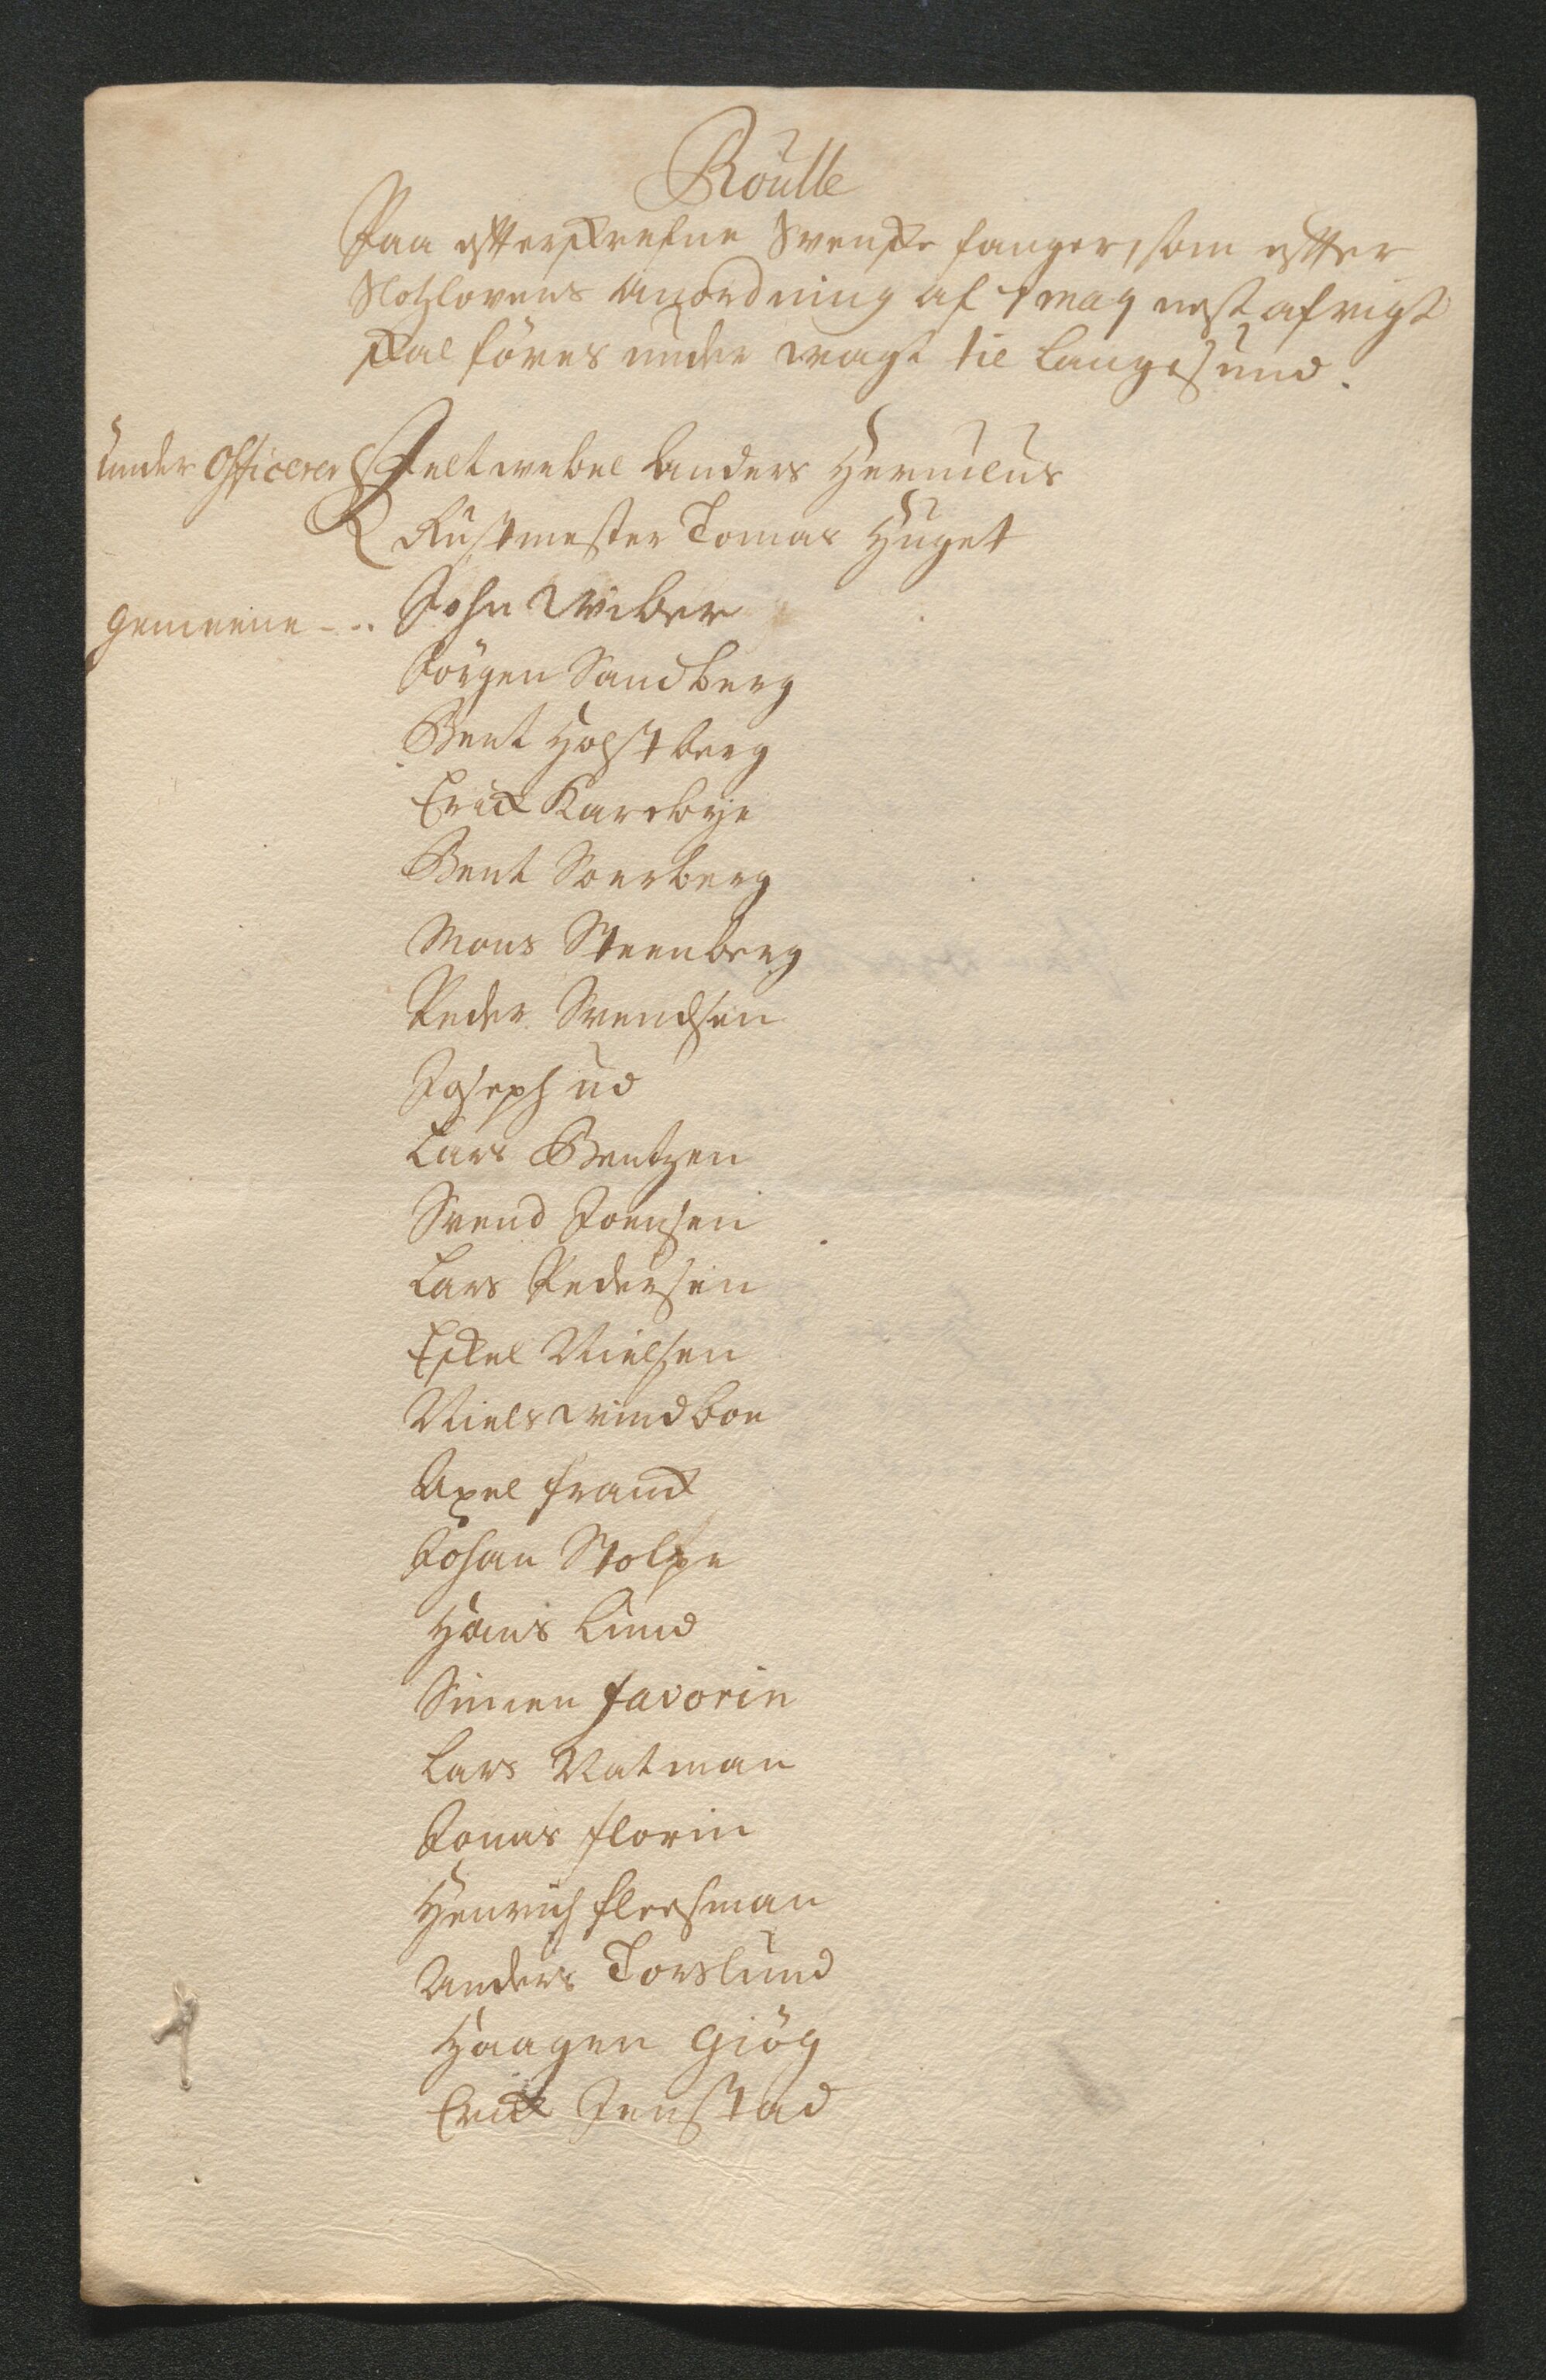 Roulle
Paa efterskrefne Svenske fanger, som efter
Slotzlovens anordning af 7 may nest afvigt
skal föres under vagt til Langesund.
Under Officerer Feltwebel Anders Hermelus
Rustmester Tomas Huget
Gemeene - .. John Wiber
Jörgen Sandberg
Bent Holstberg
Erick Karebye
Bent Soerberg
Mons Steenberg
Peder Svendsen
Joseph ud
Lars Bentzen
Svend Joensen
Lars Pedersen
Eskel Nielsen
Niels Windboe
Axel Franck
Johan Stolpe
Hans Lund
Simen Favorin
Lars Natman
Jonas Florin
Henrich Fleesman
Anders Torslund
Haagen Giög
Erick Jenstad